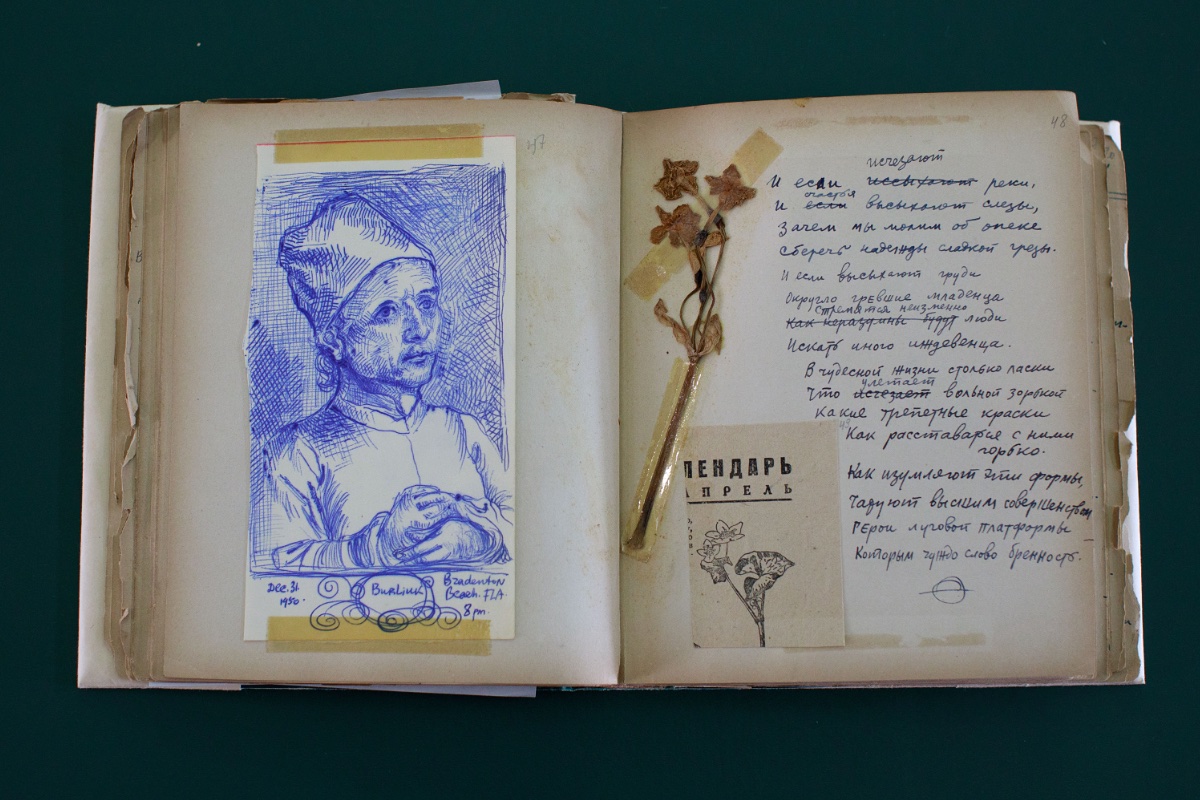 47
Dec. 31
1950.
Burliuk
Bradenton
Beach. FLA.
8 pm.
48
исчезают
И если иссыхают реки,
счастья
И если высыхают слезы,
Зачем мы молим об опеке
Сберечь надежды сладкой грезы.
И если высыхают груди
Округло гревшие младенца
Стремятся неизменно
Как нераздины будут люди
Искать иного иждевенца.
В чудесной жизни столько ласки
улетает
Что исчезает вольной зорькой
Какие трепетные краски
Как расставаться с ними
горько.
Как изумляют эти формы,
Чаруют высшим совершенством
Герои луговой платформы
Которым чуждо слово бренность.
ЛЕНДАРЬ
АПРЕЛЬ